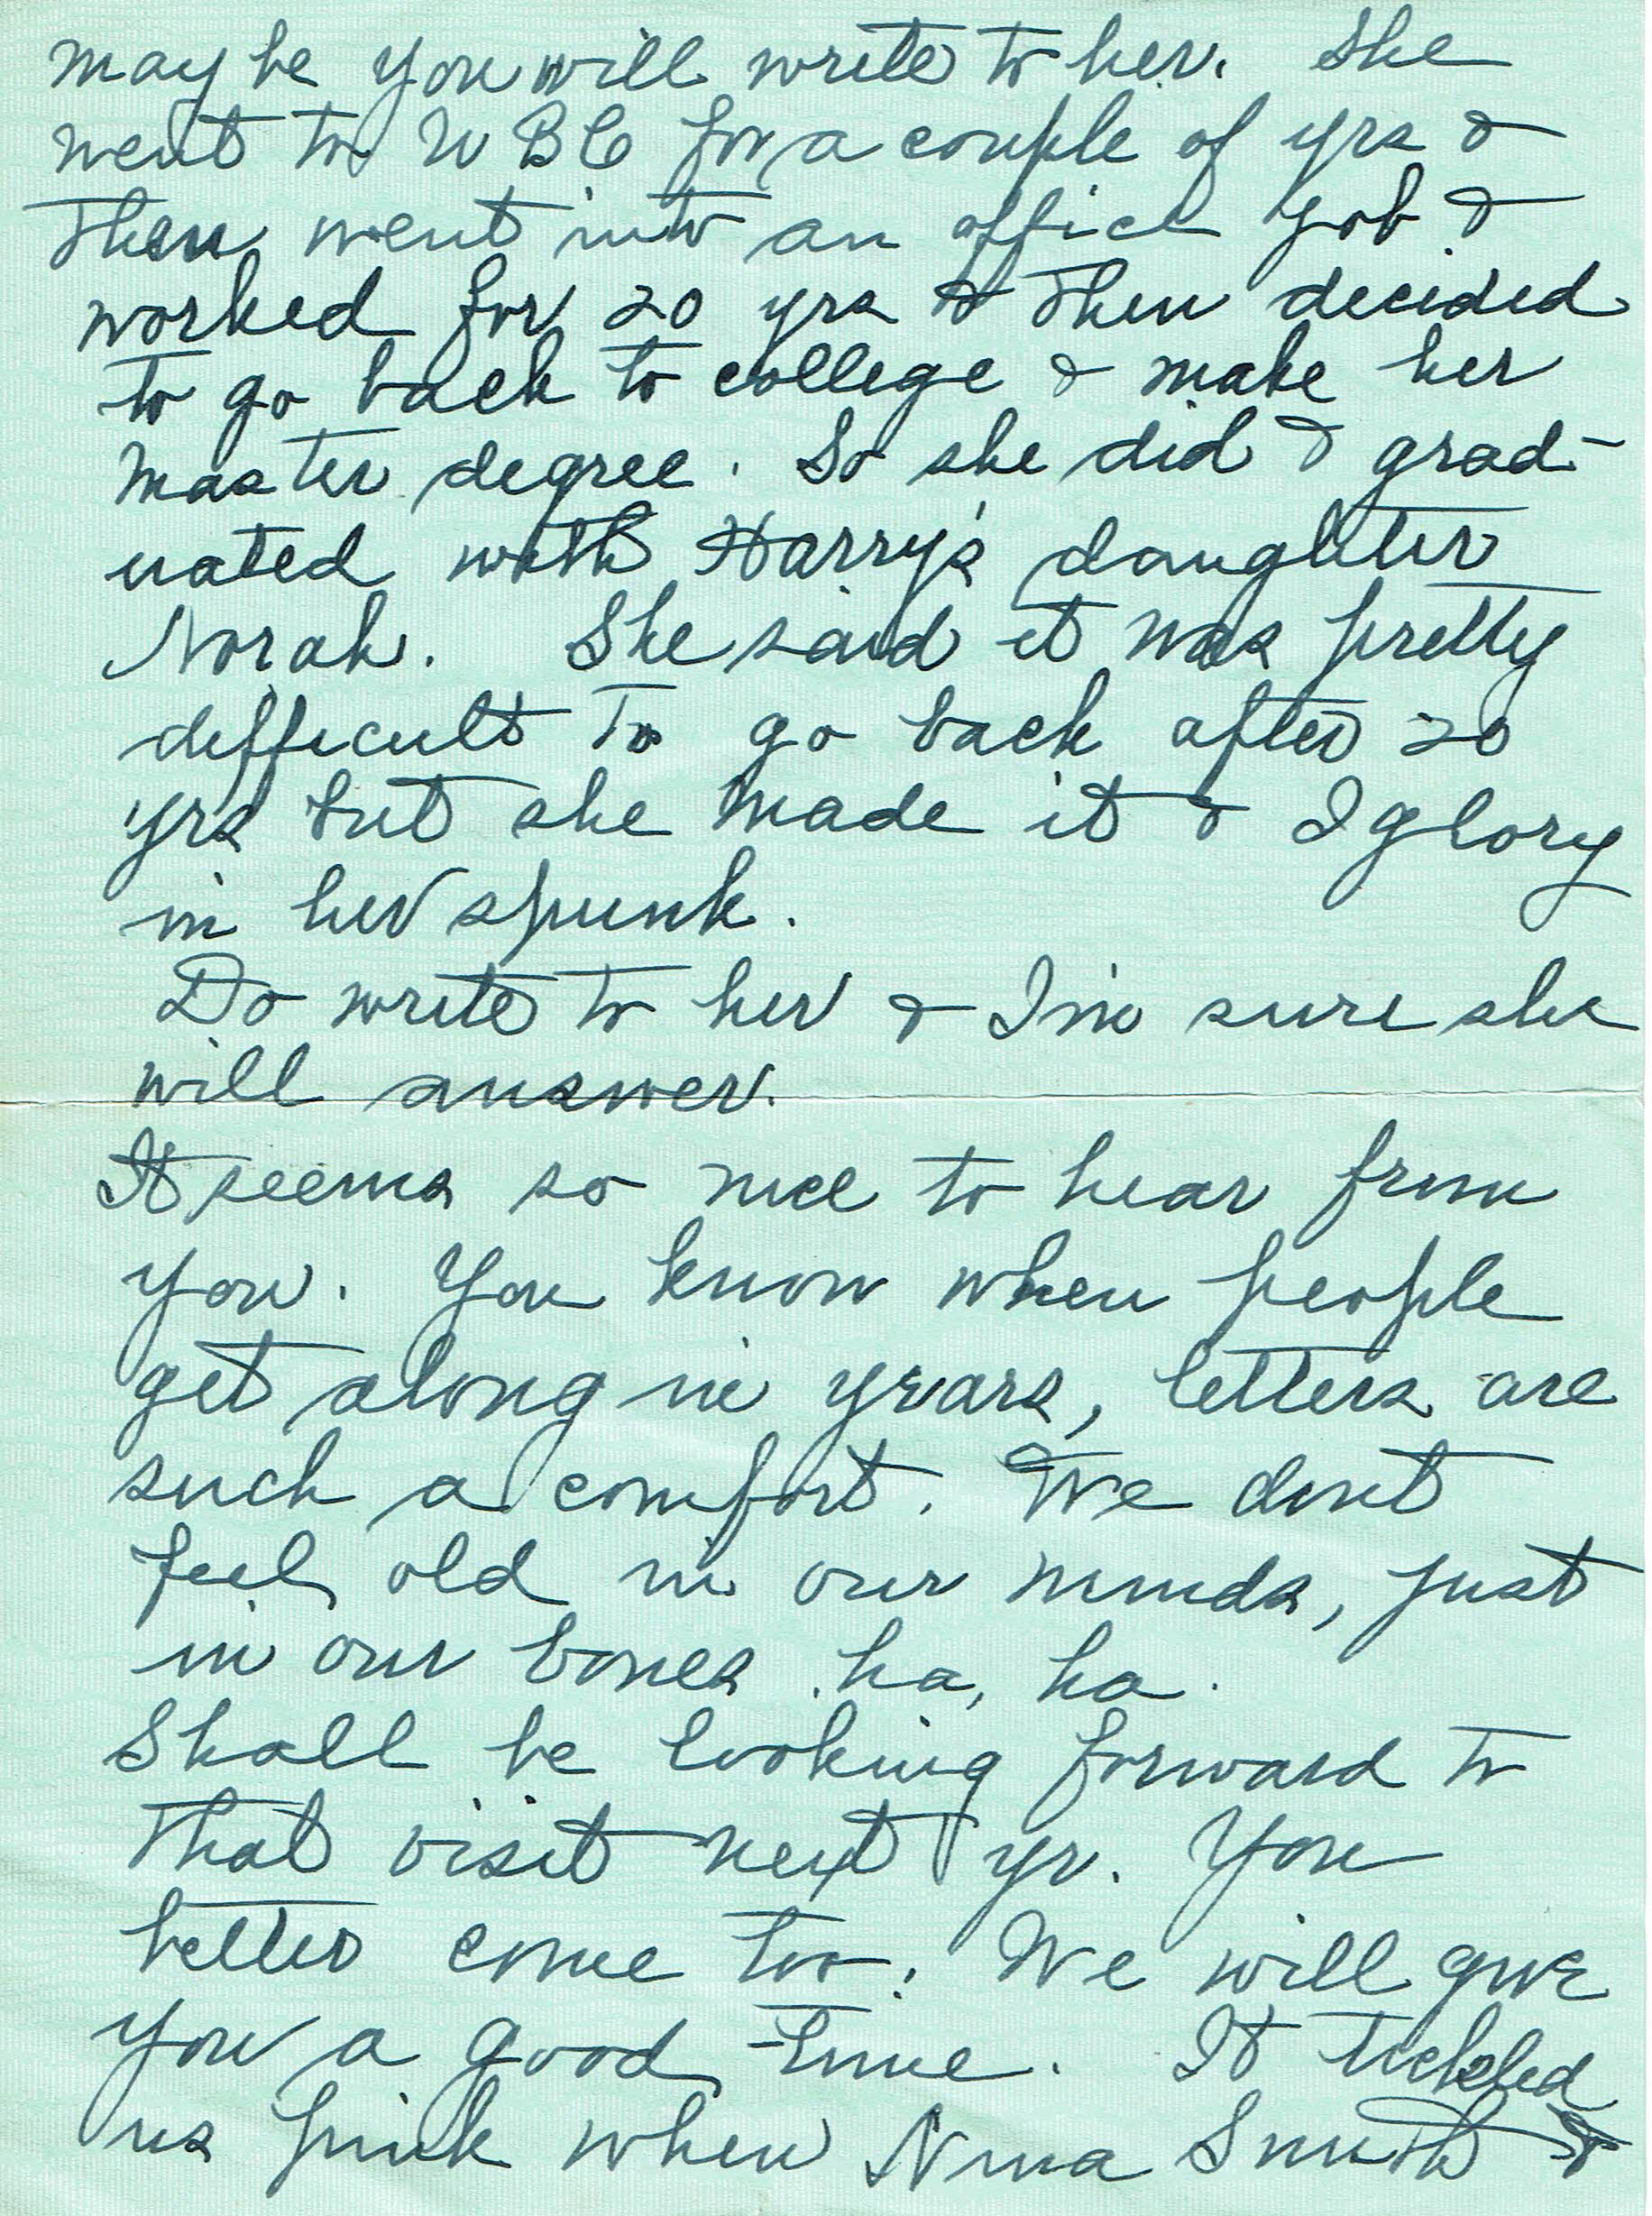 may be you will write to her. She
went to W B C for a couple of yrs &
then went into an office job &
worked for 20 yrs & then decided
to go back to college & make her
master degree. So she did & grad-
uated with Harry's daughter
Norah. She said it was pretty
difficult to go back after 20
yrs but she made it & I glory
in her spunk.
Do write to her & I'm sure she
will answer.
It seems so nice to hear from
you. You know when people
get along in years, letters are
such a comfort. We dont
feel old in our minds, just
in our bones, ha, ha.
Shall be looking forward to
that visit next yr. You
better come too. We will give
you a good time. It tickled
us pink when Nina Smith &